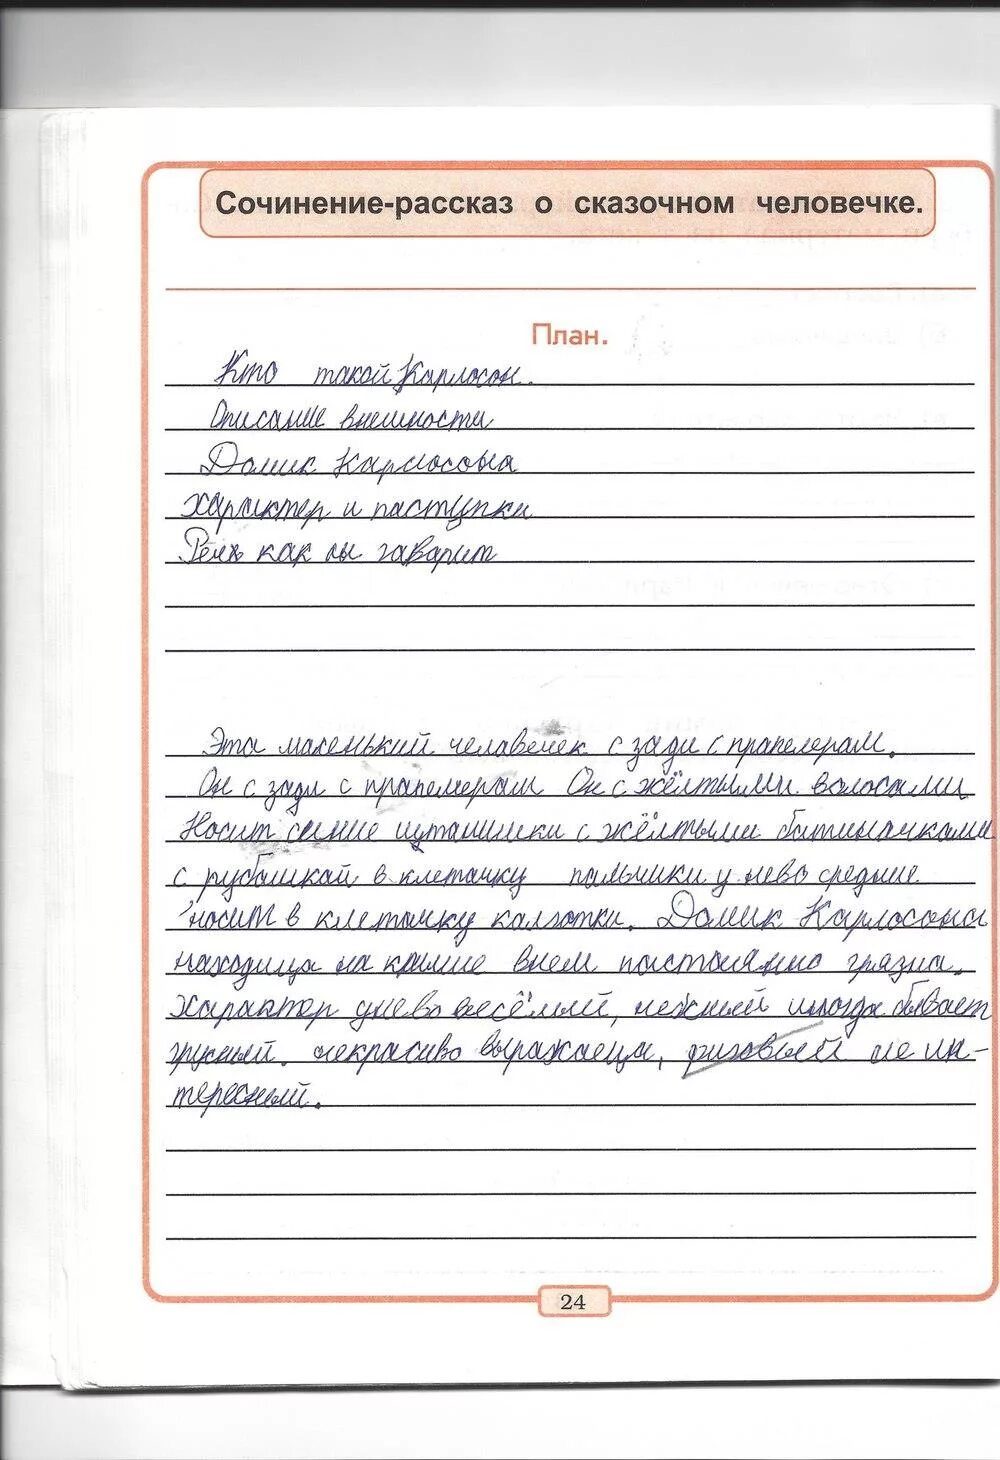 Сочинение-рассказ о сказочном человечке.
План.
Кто такой Карлосон.
Описание внешности
Домик Карлосона
характер и паступки
Речь как гаварит
Эта маленький челавечек с зади с прапелерам.
Он с зади с прапелерам Он с жёлтыми воласами
Носит синие штанишки с жёлтыми батиначками
с рубашкой в клетачку пальчики у нево средние
носит в клетачку калготки. Домик Карлосона
находица на крыше внем пастоянно грязна.
характер унево весёлый, нежный иногда бывает
грусный. некрасиво выражаеца, не ин-
тересный.
24